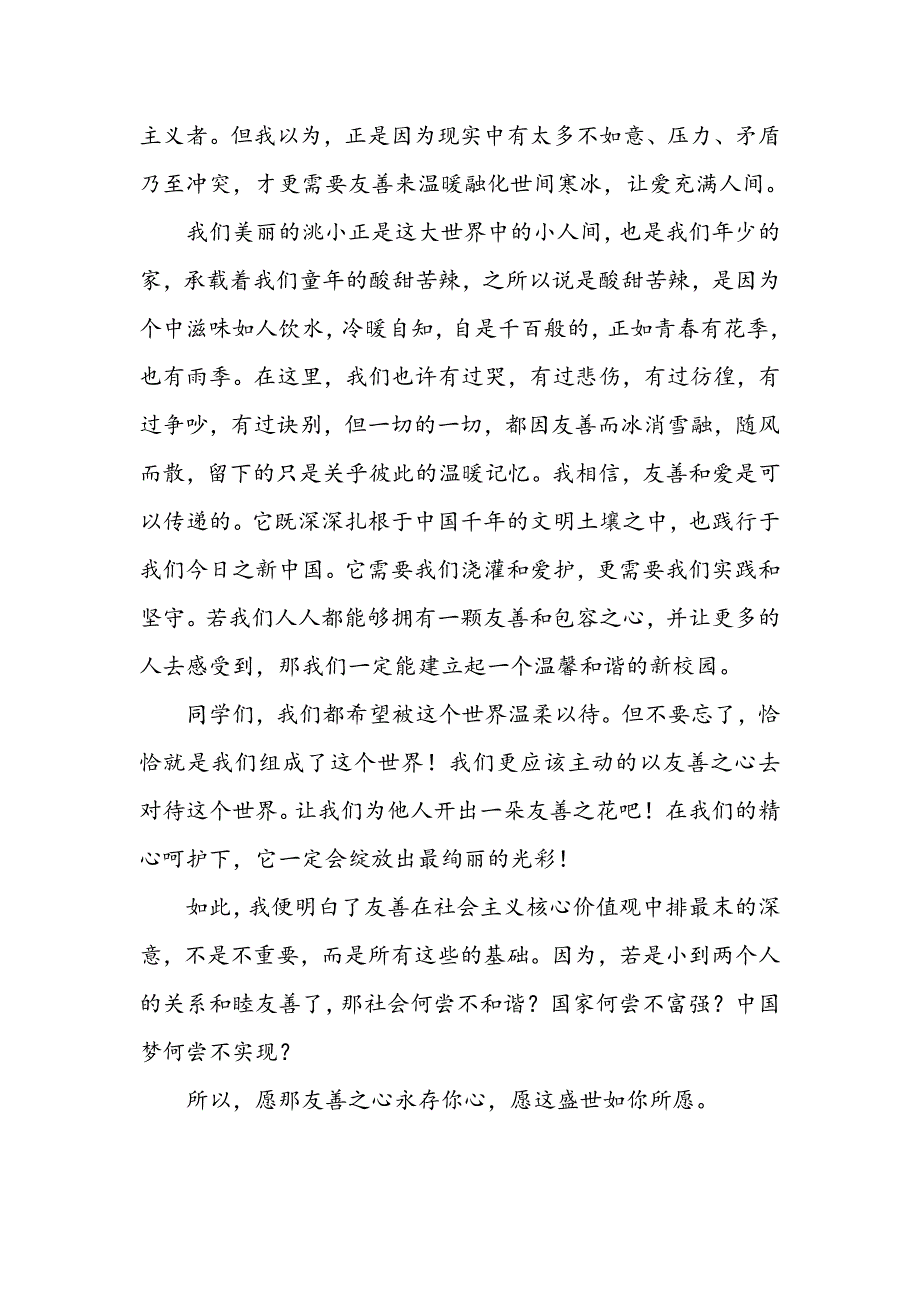 主义者。但我以为，正是因为现实中有太多不如意、压力、矛盾
乃至冲突，才更需要友善来温暖融化世间寒冰，让爱充满人间。
我们美丽的洮小正是这大世界中的小人间，也是我们年少的
家，承载着我们童年的酸甜苦辣，之所以说是酸甜苦辣，是因为
个中滋味如人饮水，冷暖自知，自是千百般的，正如青春有花季，
也有雨季。在这里，我们也许有过哭，有过悲伤，有过彷徨，有
过争吵，有过诀别，但一切的一切，都因友善而冰消雪融，随风
而散，留下的只是关乎彼此的温暖记忆。我相信，友善和爱是可
以传递的。它既深深扎根于中国千年的文明土壤之中，也践行于
我们今日之新中国。它需要我们浇灌和爱护，更需要我们实践和
坚守。若我们人人都能够拥有一颗友善和包容之心，并让更多的
人去感受到，那我们一定能建立起一个温馨和谐的新校园。
同学们，我们都希望被这个世界温柔以待。但不要忘了，恰
恰就是我们组成了这个世界！我们更应该主动的以友善之心去
对待这个世界。让我们为他人开出一朵友善之花吧！在我们的精
心呵护下，它一定会绽放出最绚丽的光彩！
如此，我便明白了友善在社会主义核心价值观中排最末的深
意，不是不重要，而是所有这些的基础。因为，若是小到两个人
的关系和睦友善了，那社会何尝不和谐？国家何尝不富强？中国
梦何尝不实现？
所以，愿那友善之心永存你心，愿这盛世如你所愿。